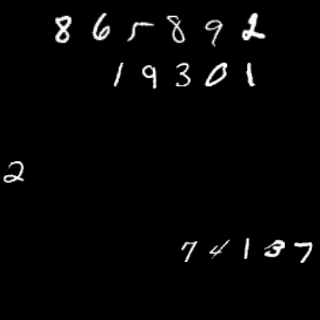 865892
19301
2
74137